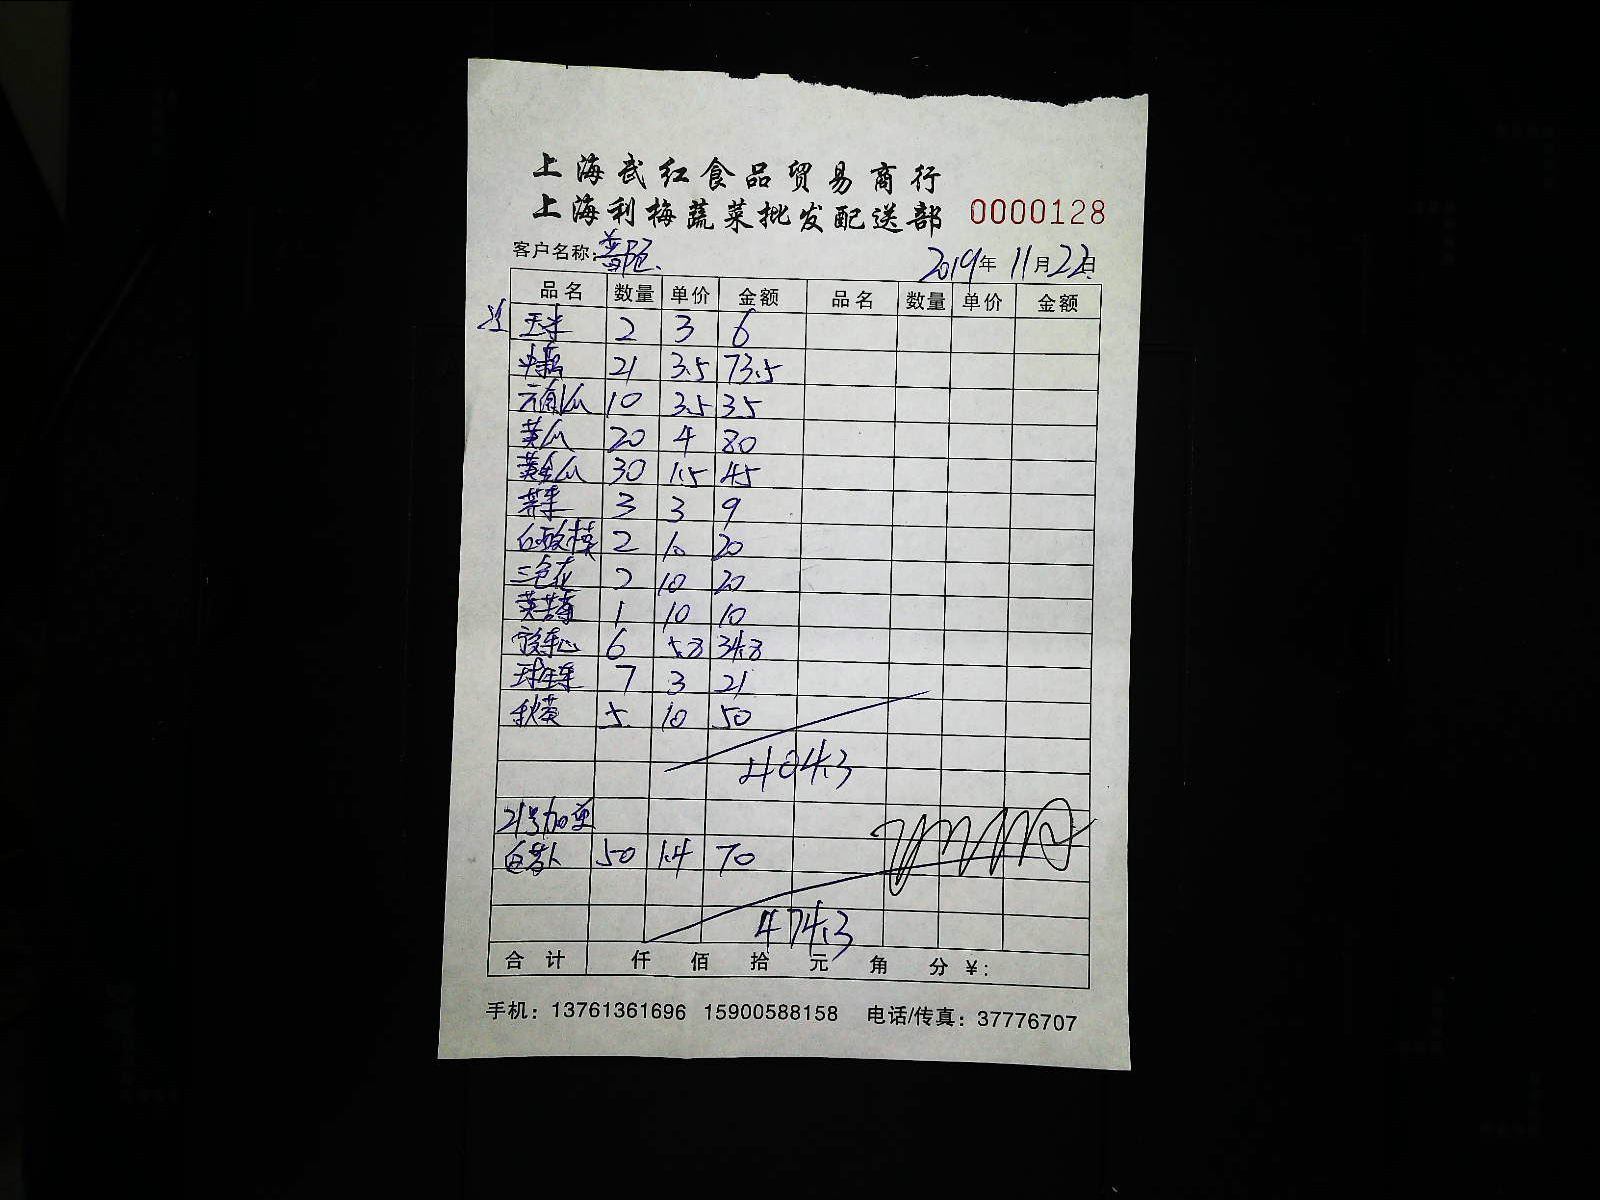 上海武红食品贸易商行
上海利梅蔬菜批发配送部 0000128
客户名称: 2019年11月22日
品名 数量 单价 金额 品名 数量 单价 金额
玉米 2 3 6
21 3.5 73.5
10 3.5 35
黄瓜 20 4 80
黄金瓜 30 1.5 45
3 3 9
2 10 20
三色花 2 10 20
1 10 10
6 5.8 34.8
球生菜 7 3 21
秋黄 5. 10 50
404.3
21号加单
白萝卜 50 1.4 70
474.3
合计 仟 佰 拾 元 角 分 ¥:
手机: 13761361696 15900588158 电话/传真: 37776707